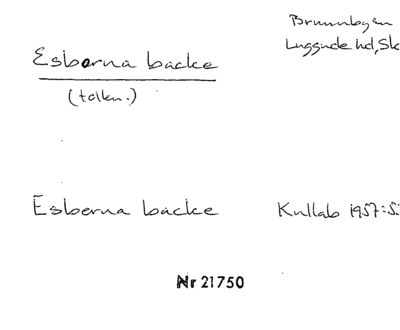 Brunnbyen
Luggude hd, Sk
Esborna backe
(tolkn.)
Esberna backe
Kullab 1957:S.
Nr 21750